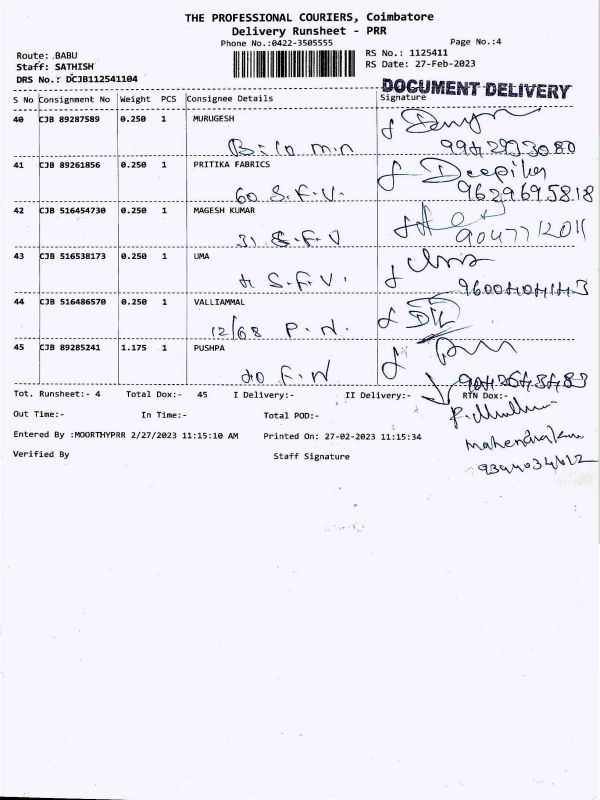 THE PROFESSIONAL COURIERS, Coimbatore
Delivery Runsheet - PRR
Phone No.:0422-3505555 Page No.:4
Route: BABU RS No.: 1125411
Staff: SATHISH RS Date: 27-Feb-2023
DRS No.: DCJB112541104
DOCUMENT DELIVERY
S No Consignment No Weight PCS Consignee Details Signature
40 CJB 89287589 0.250 1 MURUGESH
41 CJB 89261856 0.250 1 PRITIKA FABRICS Deepika
60 S.F.V. 9629695818
42 CJB 516454730 0.250 1 MAGESH KUMAR
31 S.F.V
43 CJB 516538173 0.250 1 UMA
S.F.V.
44 CJB 516486570 0.250 1 VALLIAMMAL
12/68 P.N.
45 CJB 89285241 1.175 1 PUSHPA
Tot. Runsheet:- 4 Total Dox:- 45 I Delivery:- II Delivery:- RTN Dox:-
Out Time:- In Time:- Total POD:-
Entered By :MOORTHYPRR 2/27/2023 11:15:10 AM Printed On: 27-02-2023 11:15:34
Verified By Staff Signature